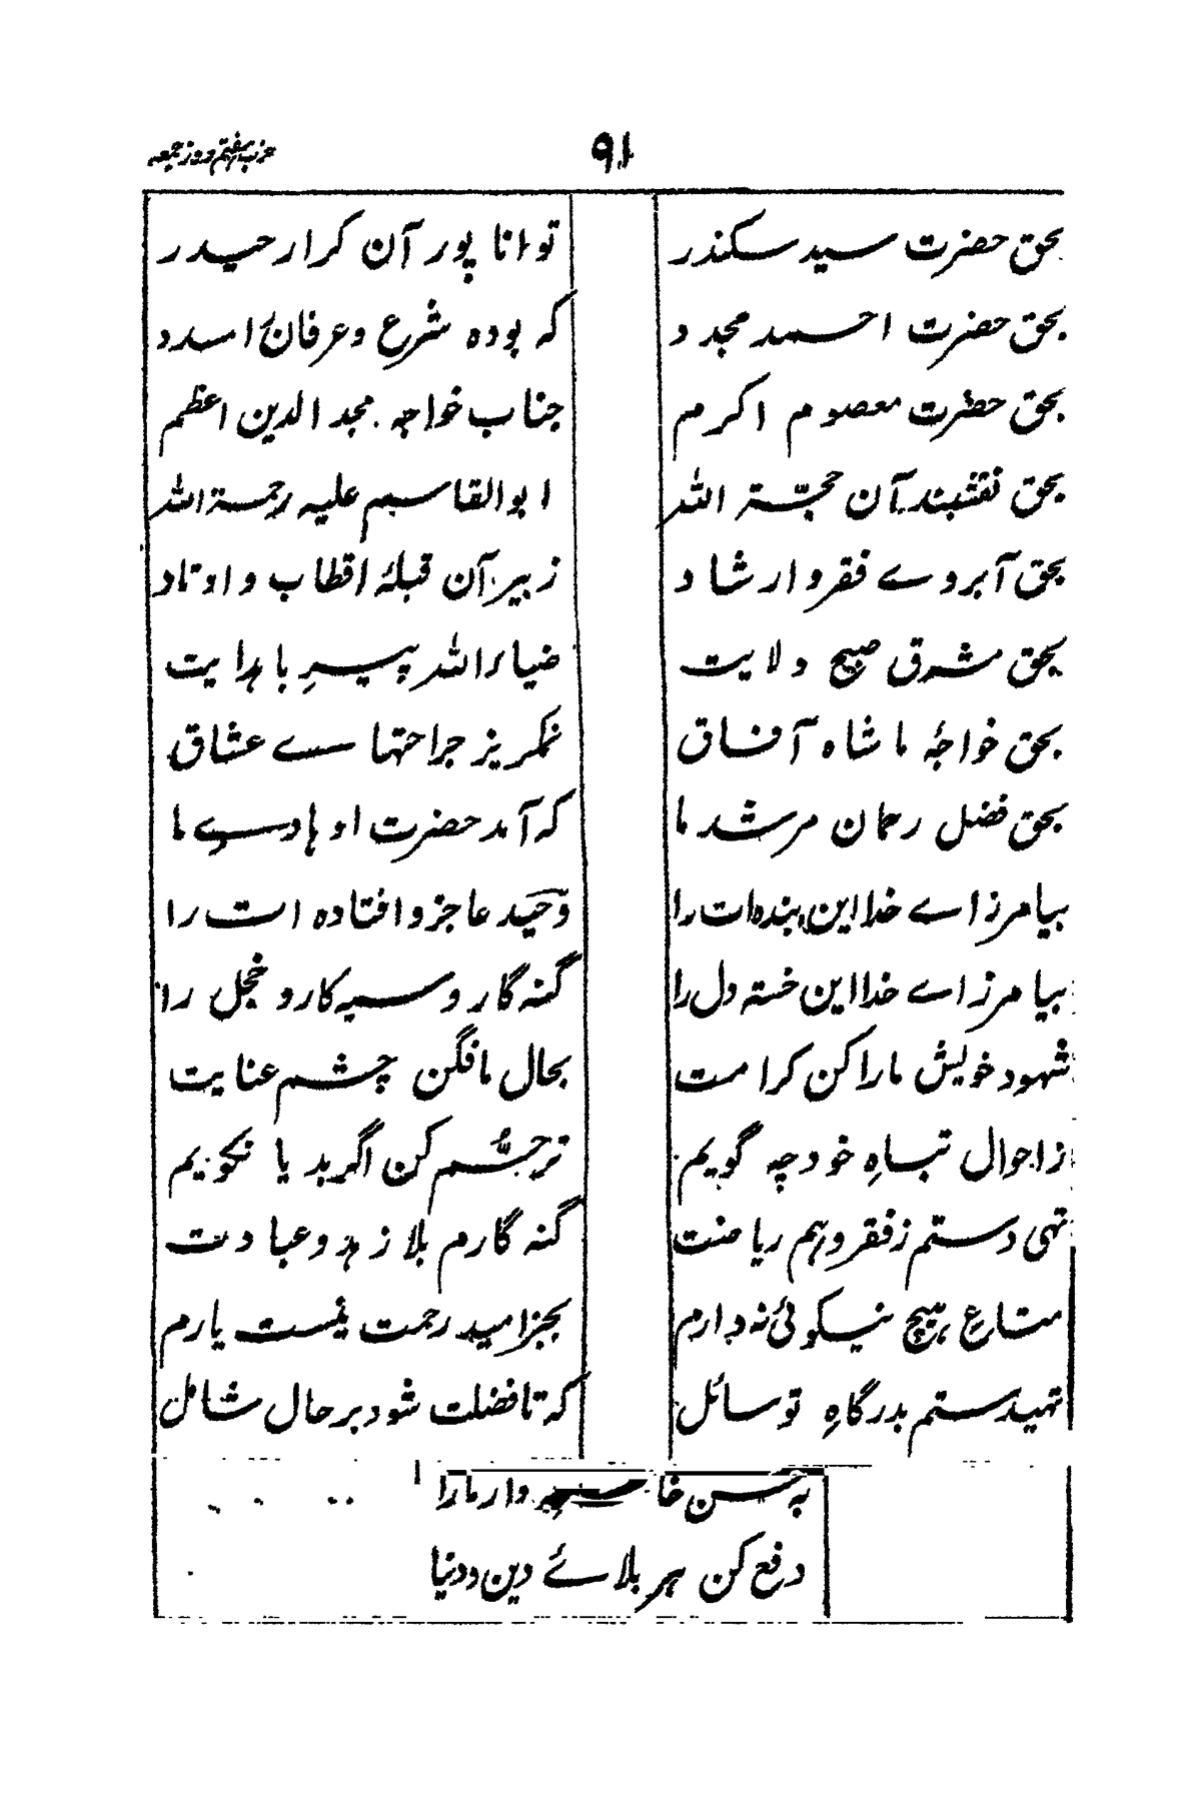 ۹۱ حزب ہفتم روز جمعہ
بحق حضرت سید سکندر توانا پور آن کرار حیدر
بحق حضرت احمد مجدد کہ بودہ شرع و عرفان را سدد
بحق حضرت معصوم اکرم جناب خواجہ مجد الدین اعظم
بحق نقشبند آن حجّۃ اللہ ابوالقاسم علیہ رحمۃ اللہ
بحق آبروے فقر و ارشاد زبیر آن قبلۂ اقطاب و اوتاد
بحق مشرق صبح ولایت ضیاء اللہ پیرِ با ہدایت
بحق خواجۂ ما شاہ آفاق نمکریز جراحتہاے عشاق
بحق فضل رحمان مرشد ما کہ آمد حضرت او ہادے ما
بیامرز اے خدا این بندہ ات را وحید عاجز و افتادہ ات را
بیامرز اے خدا این خستہ دل را گنہ گار و سیہ کار و خجل را
شہود خویش مارا کن کرامت بحال ما فگن چشم عنایت
ز احوال تباہِ خود چہ گویم ترحّم کن اگر بد یا نکویم
تہی دستم ز فقر و ہم ریاضت گنہ گارم بلا زہد و عبادت
متاعِ ہیچ نیکوئی نہ دارم بجز امید رحمت نیست یارم
تہیدستم بدرگاہِ تو سائل کہ تا فضلت شود بر حال شامل
بہ حسن وار مارا
دفع کن ہر بلائے دین و دنیا